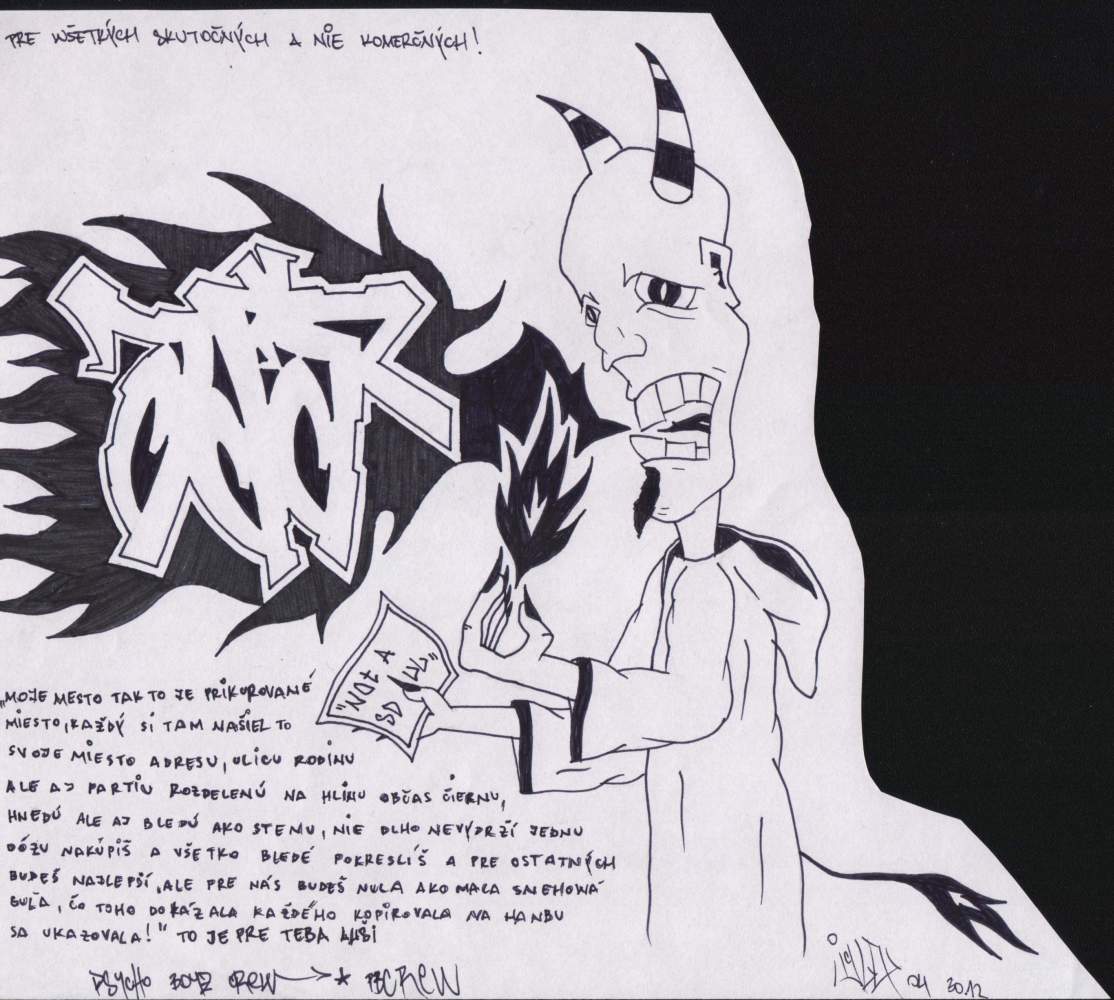 PRE WŠETKÝCH SKUTOČNÝCH A NIE KOMERČNÝCH!
"MOJE MESTO TAK TO JE PRIKUROVANÉ
MIESTO, KAŽDÝ SI TAM NAŠIEL TO
SVOJE MIESTO ADRESU, ULICU RODINU
ALE AJ PARTIU ROZDELENÚ NA HLINU OBČAS ČIERNU,
HNEDÚ ALE AJ BLEDÚ AKO STENU, NIE DLHO NEVYDRŽÍ JEDNU
DÓZU NAKÚPIŠ A VŠETKO BLEDÉ POKRESLÍŠ A PRE OSTATNÝCH
BUDEŠ NAJLEPŠÍ, ALE PRE NÁS BUDEŠ NULA AKO MALA SNEHOWÁ
GUĽA, ČO TOHO DOKÁZALA KAŽDÉHO KOPIROVALA NA HANBU
SA UKAZOVALA!" TO JE PRE TEBA
PSYCHO BOYZ CREW → * PBCREW
04 2012